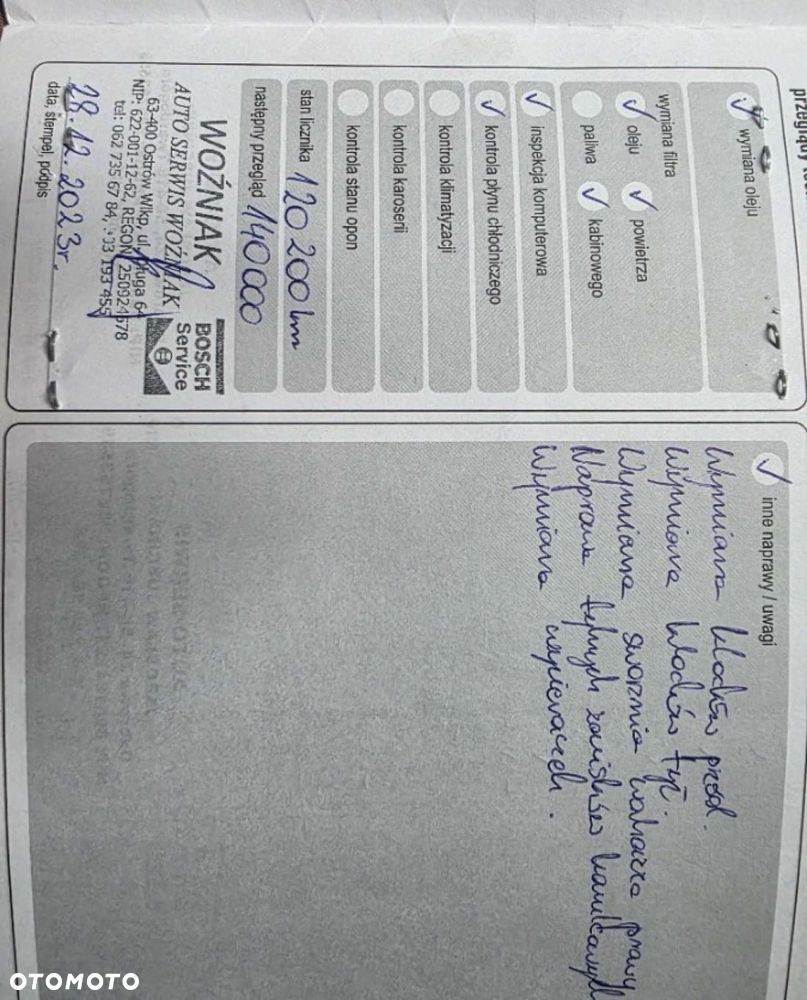 wymiana oleju
wymiana filtra
oleju powietrza
paliwa kabinowego
inspekcja komputerowa
kontrola płynu chłodniczego
kontrola klimatyzacji
kontrola karoserii
kontrola stanu opon
stan licznika 120 200 km
następny przegląd 140 000
WOŹNIAK
AUTO SERWIS WOŹNIAK
63-400 Ostrów Wlkp, ul. Długa 64
NIP: 622-001-12-62, REGON 250924678
tel: 062 735 67 84, 193 455
BOSCH
Service
28.12.2023r.
data, stempel, podpis
inne naprawy / uwagi
Wymiana klocków przód.
Wymiana klocków tył.
Wymiana sworznia wahacza prawy
Naprawa tylnych zacisków hamulcowych
Wymiana
OTOMOTO